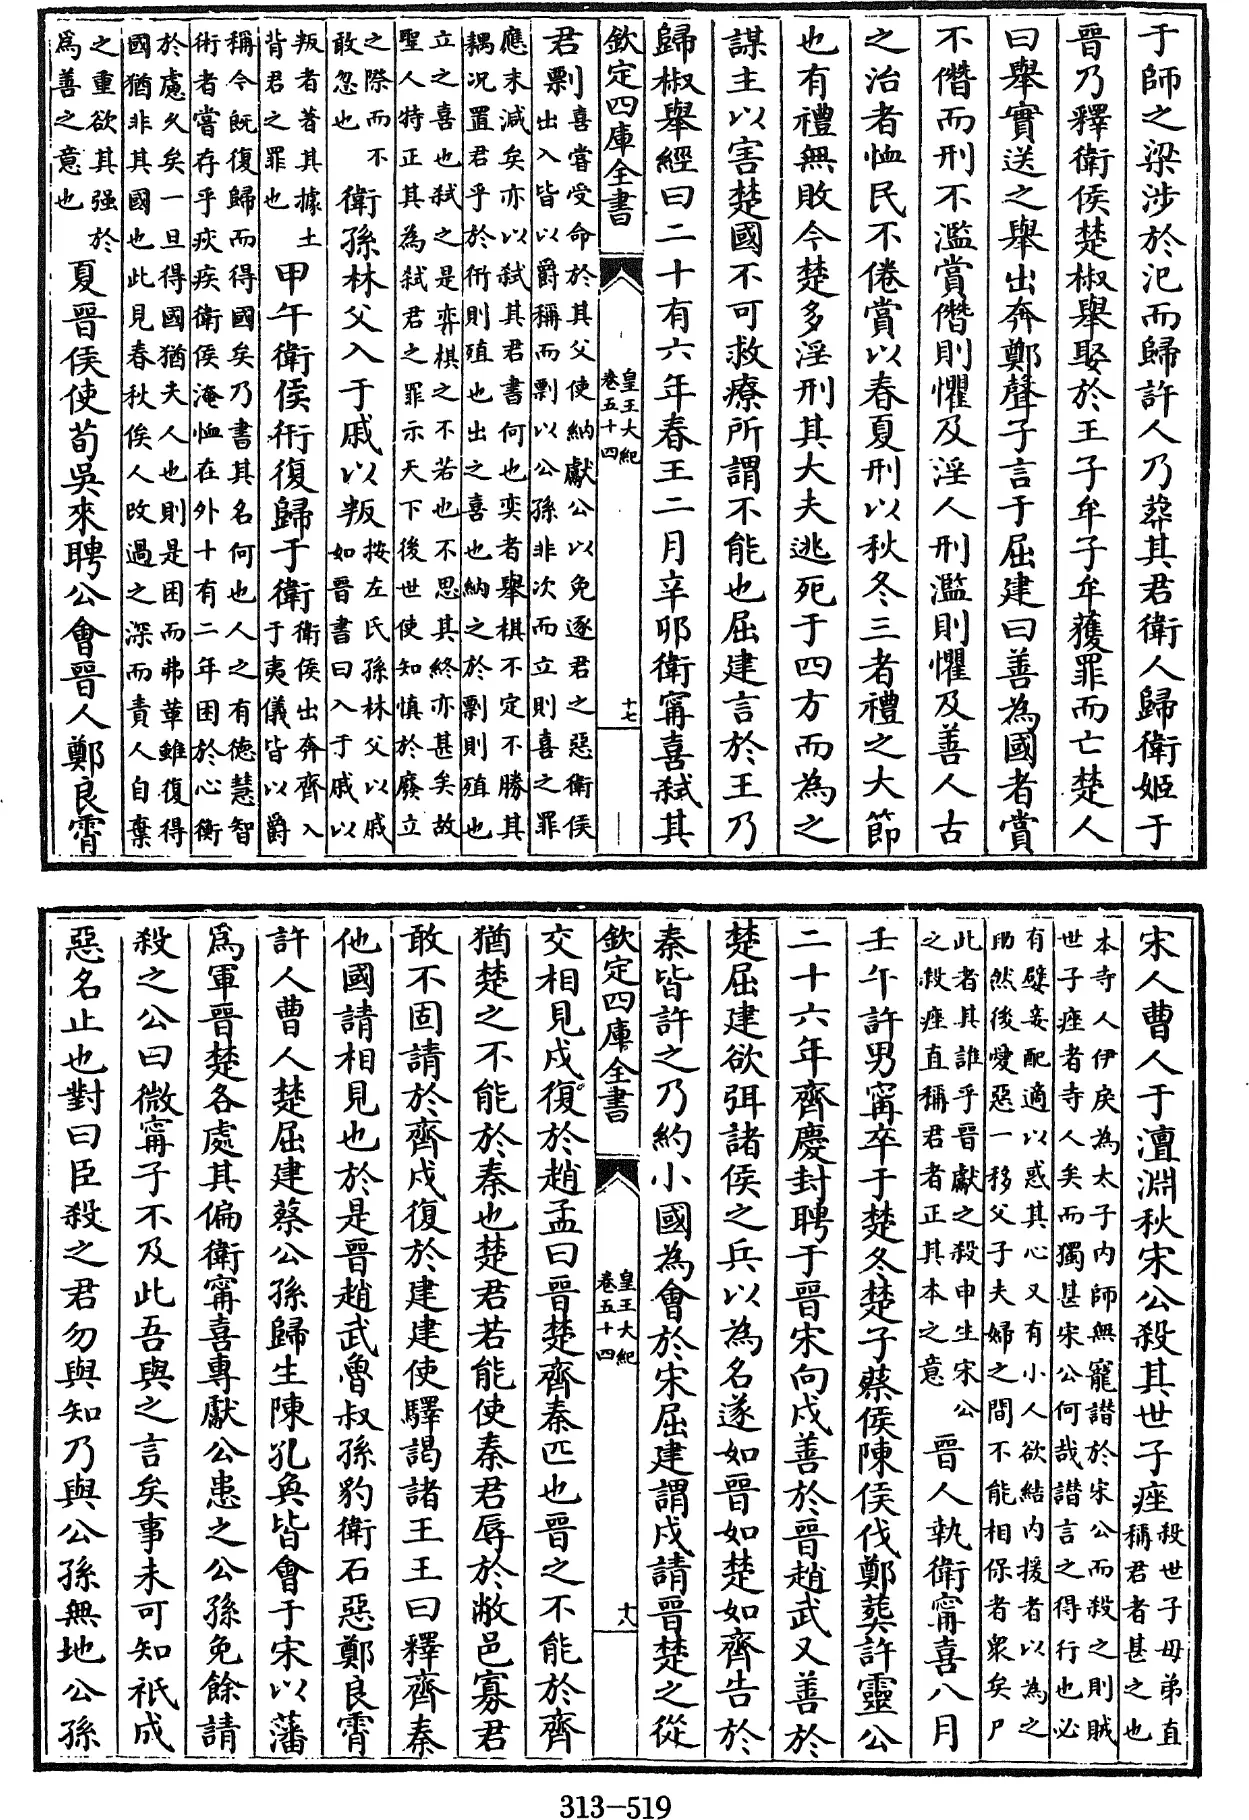 于師之梁涉於氾而歸許人乃葬其君衛人歸衛姬于
晉乃釋衛侯楚椒舉娶於王子牟子牟獲罪而亡楚人
曰舉實送之舉出奔鄭聲子言于屈建曰善為國者賞
不僭而刑不濫賞僭則懼及淫人刑濫則懼及善人古
之治者恤民不倦賞以春夏刑以秋冬三者禮之大節
也有禮無敗今楚多淫刑其大夫逃死于四方而為之
謀主以害楚國不可救療所謂不能也屈建言於王乃
歸椒舉經曰二十有六年春王二月辛卯衛甯喜弑其
欽定四庫全書
皇王大紀
卷五十四
十七
君剽
喜嘗受命於其父使納獻公以免逐君之惡衛侯
出入皆以爵稱而剽以公孫非次而立則喜之罪
應末減矣亦以弑其君書何也奕者舉棋不定不勝其
耦况置君乎於衎則殖也出之喜也納之於剽則殖也
立之喜也弑之是弈棋之不若也不思其終亦甚矣故
聖人特正其為弑君之罪示天下後世使知慎於廢立
之際而不
敢忽也
衛孫林父入于戚以叛
按左氏孫林父以戚
如晉書曰入于戚以
叛者著其據土
背君之罪也
甲午衛侯衎復歸于衛
衛侯出奔齊入
于夷儀皆以爵
稱今既復歸而得國矣乃書其名何也人之有德慧智
術者嘗存乎疢疾衛侯淹恤在外十有二年困於心衡
於慮久矣一旦得國猶夫人也則是困而弗革雖復得
國猶非其國也此見春秋俟人改過之深而責人自棄
之重欲其强於
為善之意也
夏晉侯使荀吳來聘公會晉人鄭良霄
宋人曹人于澶淵秋宋公殺其世子痤
殺世子母弟直
稱君者甚之也
本寺人伊戾為太子内師無寵譖於宋公而殺之則賊
世子痤者寺人矣而獨甚宋公何哉譖言之得行也必
有嬖妾配適以惑其心又有小人欲結内援者以為之
助然後愛惡一移父子夫婦之間不能相保者衆矣尸
此者其誰乎晉獻之殺申生宋公
之殺痤直稱君者正其本之意
晉人執衛甯喜八月
壬午許男甯卒于楚冬楚子蔡侯陳侯伐鄭葬許靈公
二十六年齊慶封聘于晉宋向戌善於晉趙武又善於
楚屈建欲弭諸侯之兵以為名遂如晉如楚如齊告於
秦皆許之乃約小國為會於宋屈建謂戌請晉楚之從
欽定四庫全書
皇王大紀
卷五十四
十八
交相見戌復於趙孟曰晉楚齊秦匹也晉之不能於齊
猶楚之不能於秦也楚君若能使秦君辱於敝邑寡君
敢不固請於齊戌復於建建使驛謁諸王王曰釋齊秦
他國請相見也於是晉趙武魯叔孫豹衛石惡鄭良霄
許人曹人楚屈建蔡公孫歸生陳孔奐皆會于宋以藩
為軍晉楚各處其偏衛甯喜專獻公患之公孫免餘請
殺之公曰微甯子不及此吾與之言矣事未可知祇成
惡名止也對曰臣殺之君勿與知乃與公孫無地公孫
313-519